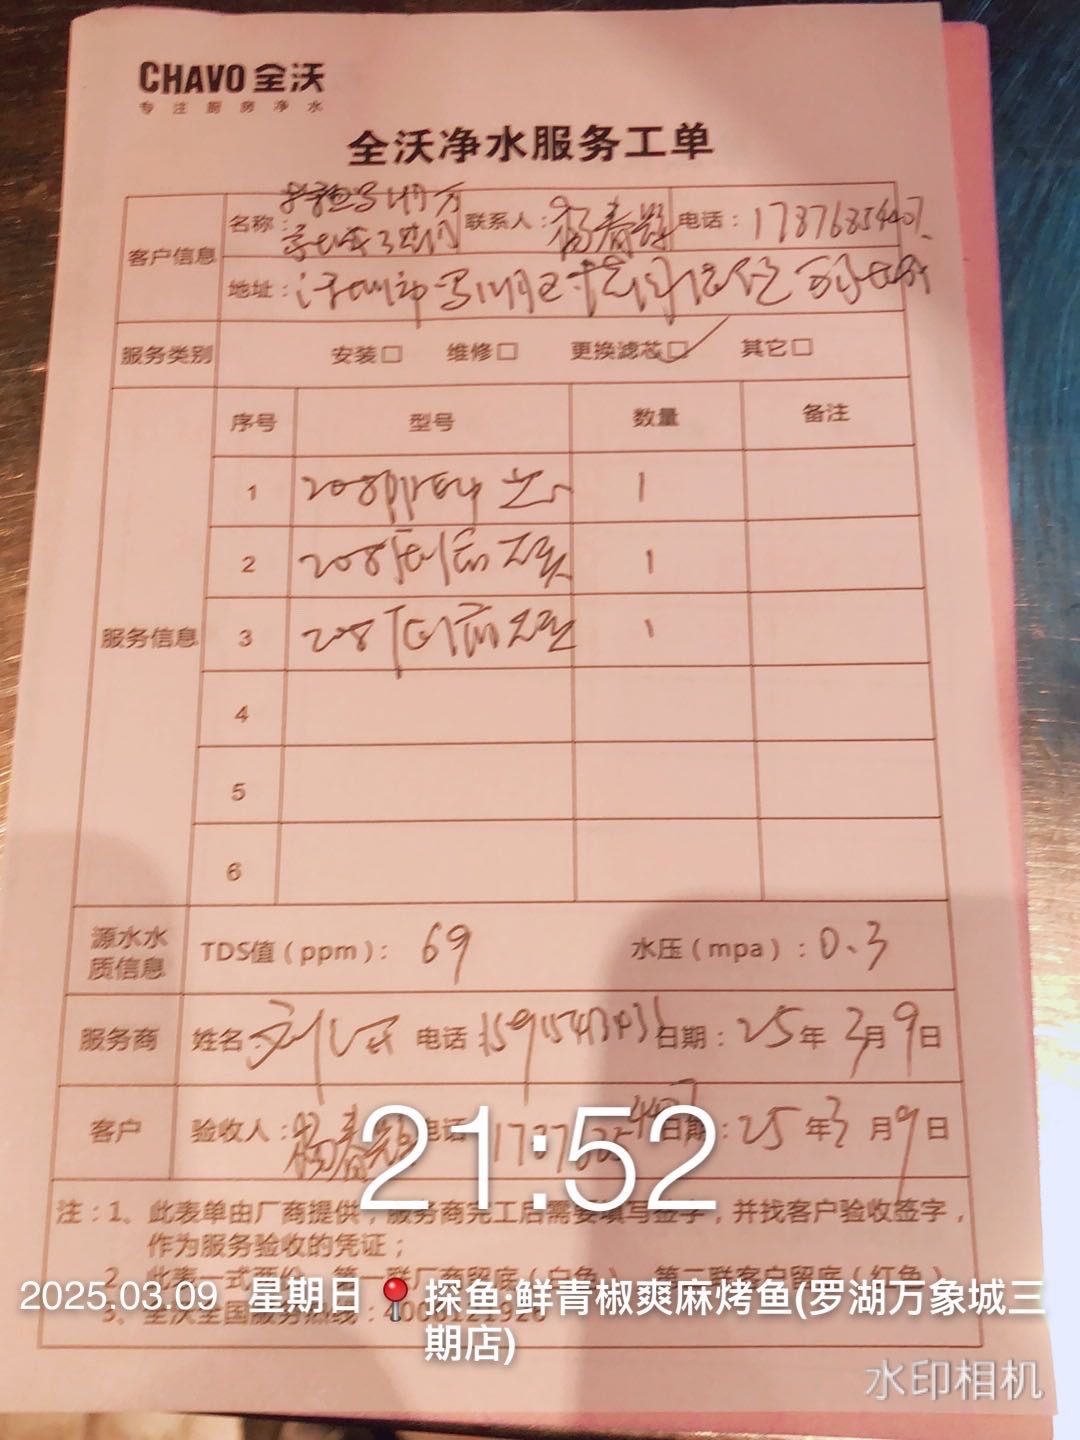 CHAVO 全沃
专注厨房净水
全沃净水服务工单
客户信息 名称： 联系人：杨春 电话：
地址：
服务类别 安装□ 维修□ 更换滤芯□✓ 其它□
服务信息 序号 型号 数量 备注
1 208 1
2 208 1
3 208 1
4
5
6
源水水质信息 TDS值（ppm）：69 水压（mpa）：0.3
服务商 姓名：刘 电话 日期：25年3月9日
客户 验收人：杨春 电话 日期：25年3月9日
21:52
注：1、此表单由厂商提供，服务商完工后需要填写签字，并找客户验收签字，
作为服务验收的凭证；
2、此表一式两份，第一联厂商留底（白色），第二联客户留底（红色）
3、全沃全国服务热线：4006121926
2025.03.09 星期日 探鱼·鲜青椒爽麻烤鱼(罗湖万象城三
期店)
水印相机